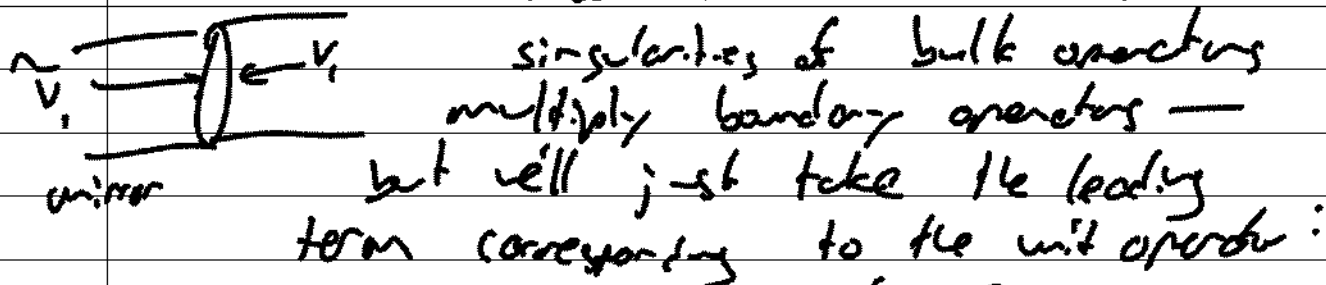 Ṽ₁ ← V₁ singularities of bulk operators
multiply boundary operators —
mirror but we'll just take the leading
term corresponding to the unit operator :